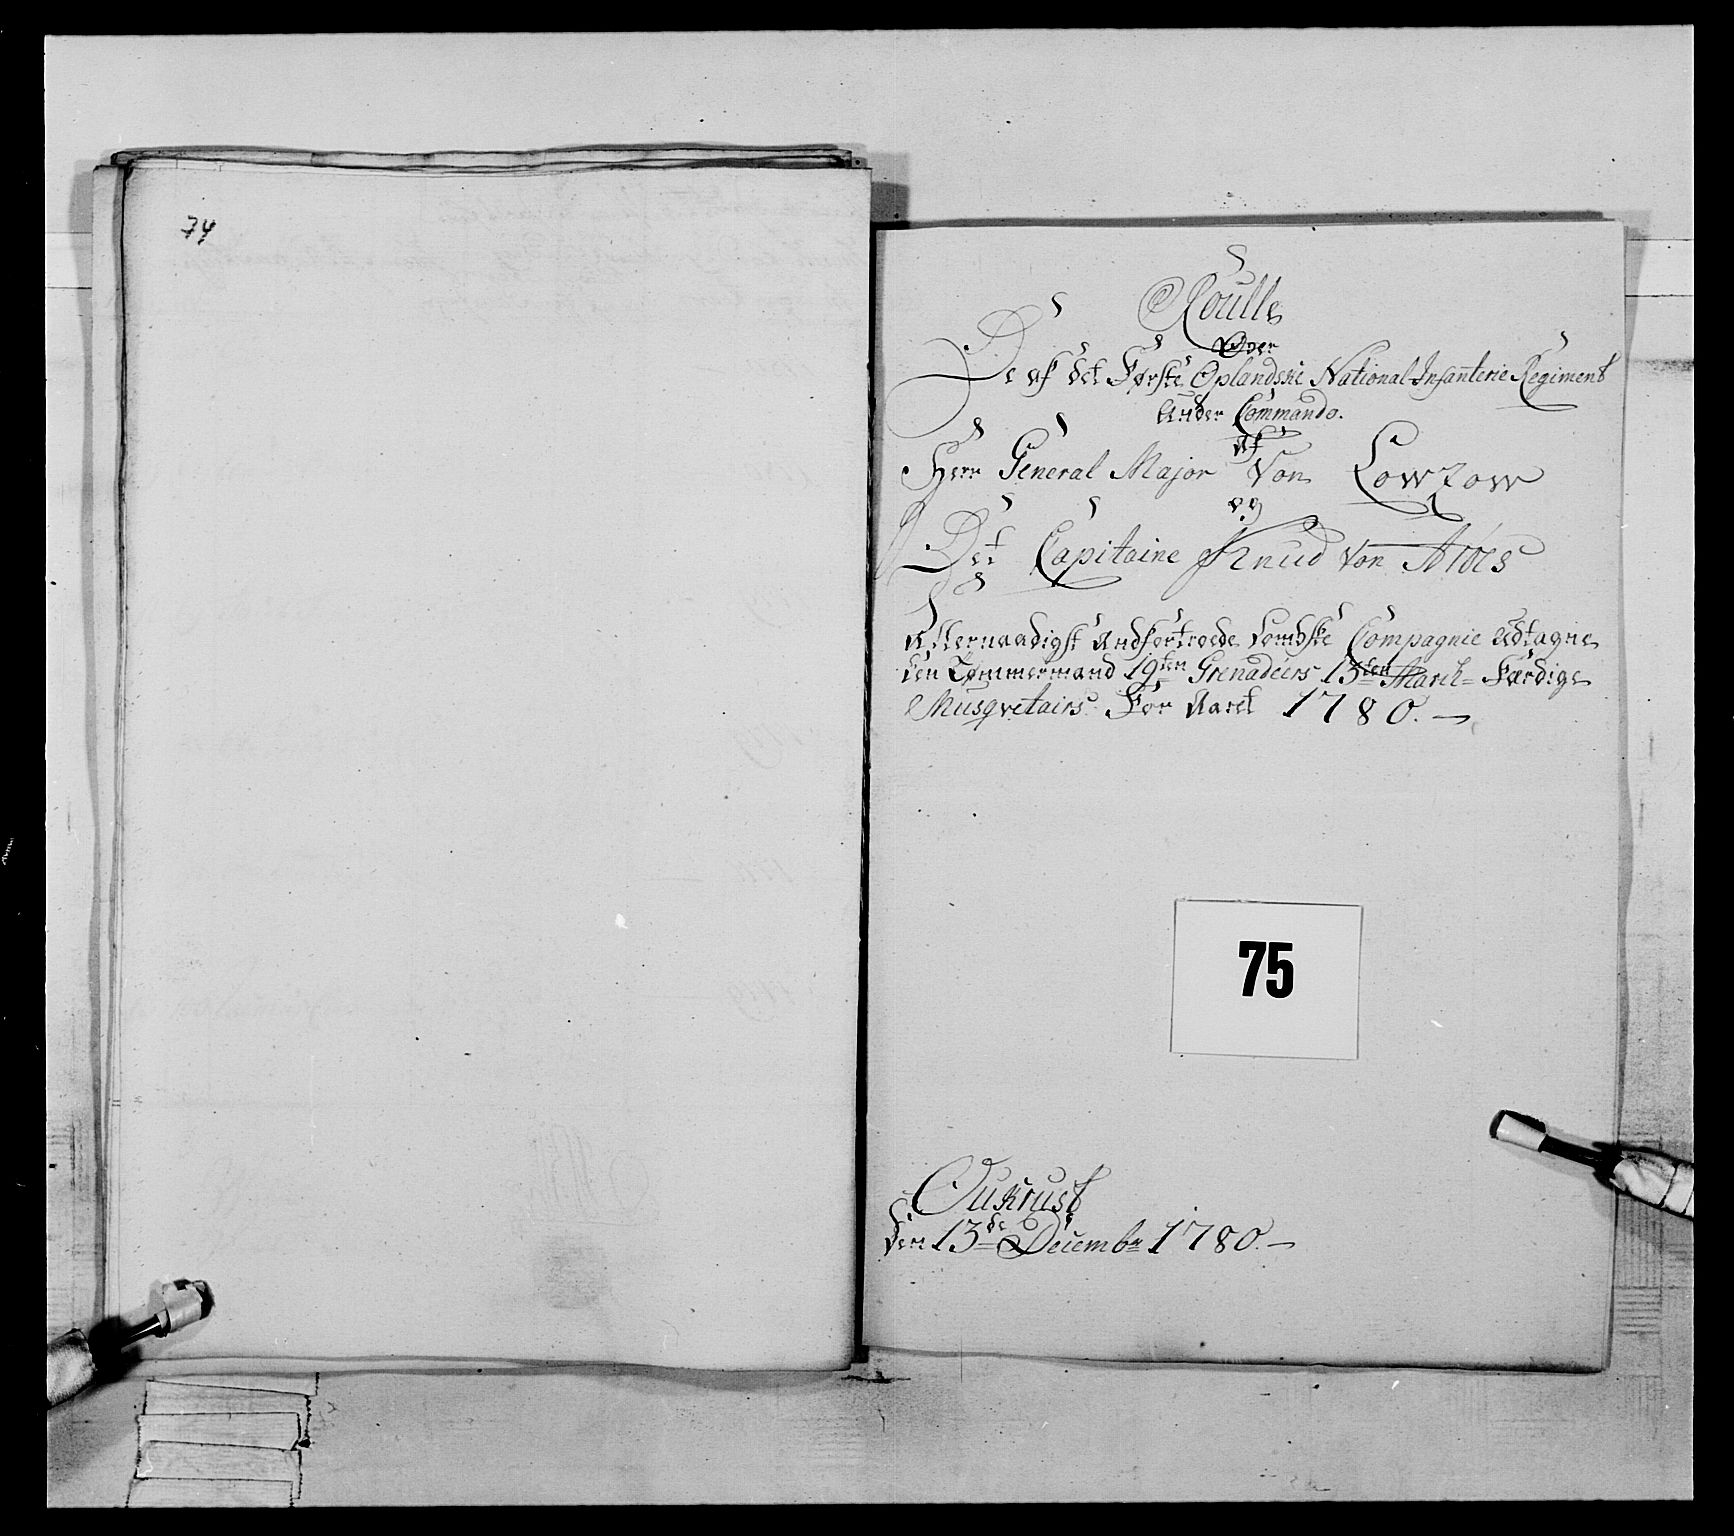 74
Roulle
Over
De af det Første Oplandske National Infanterie Regiment
Under Commando.
af
Herr General Major Von Lowzow
og
Det Capitaine Knud Von
Allernaadigst Andfortroede Lomske Compagnie Udtagne
Een Tømmermand 19ten Grenadeers 13ten March= Færdige
Musqvetairs For Aaret 1780.
75
Oukrust
Den 13de Decembr 1780.